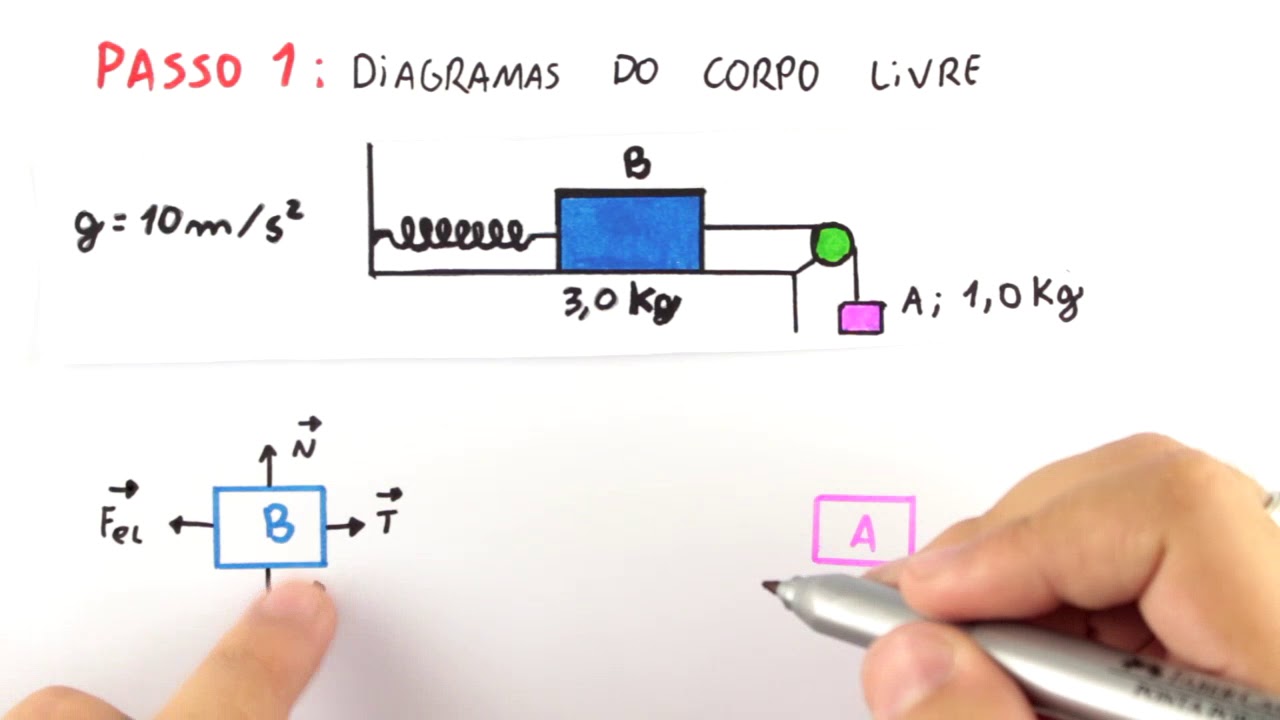 PASSO 1: DIAGRAMAS DO CORPO LIVRE
B
g = 10 m/s²
3,0 Kg
A; 1,0 Kg
N
Fel
B
T
A